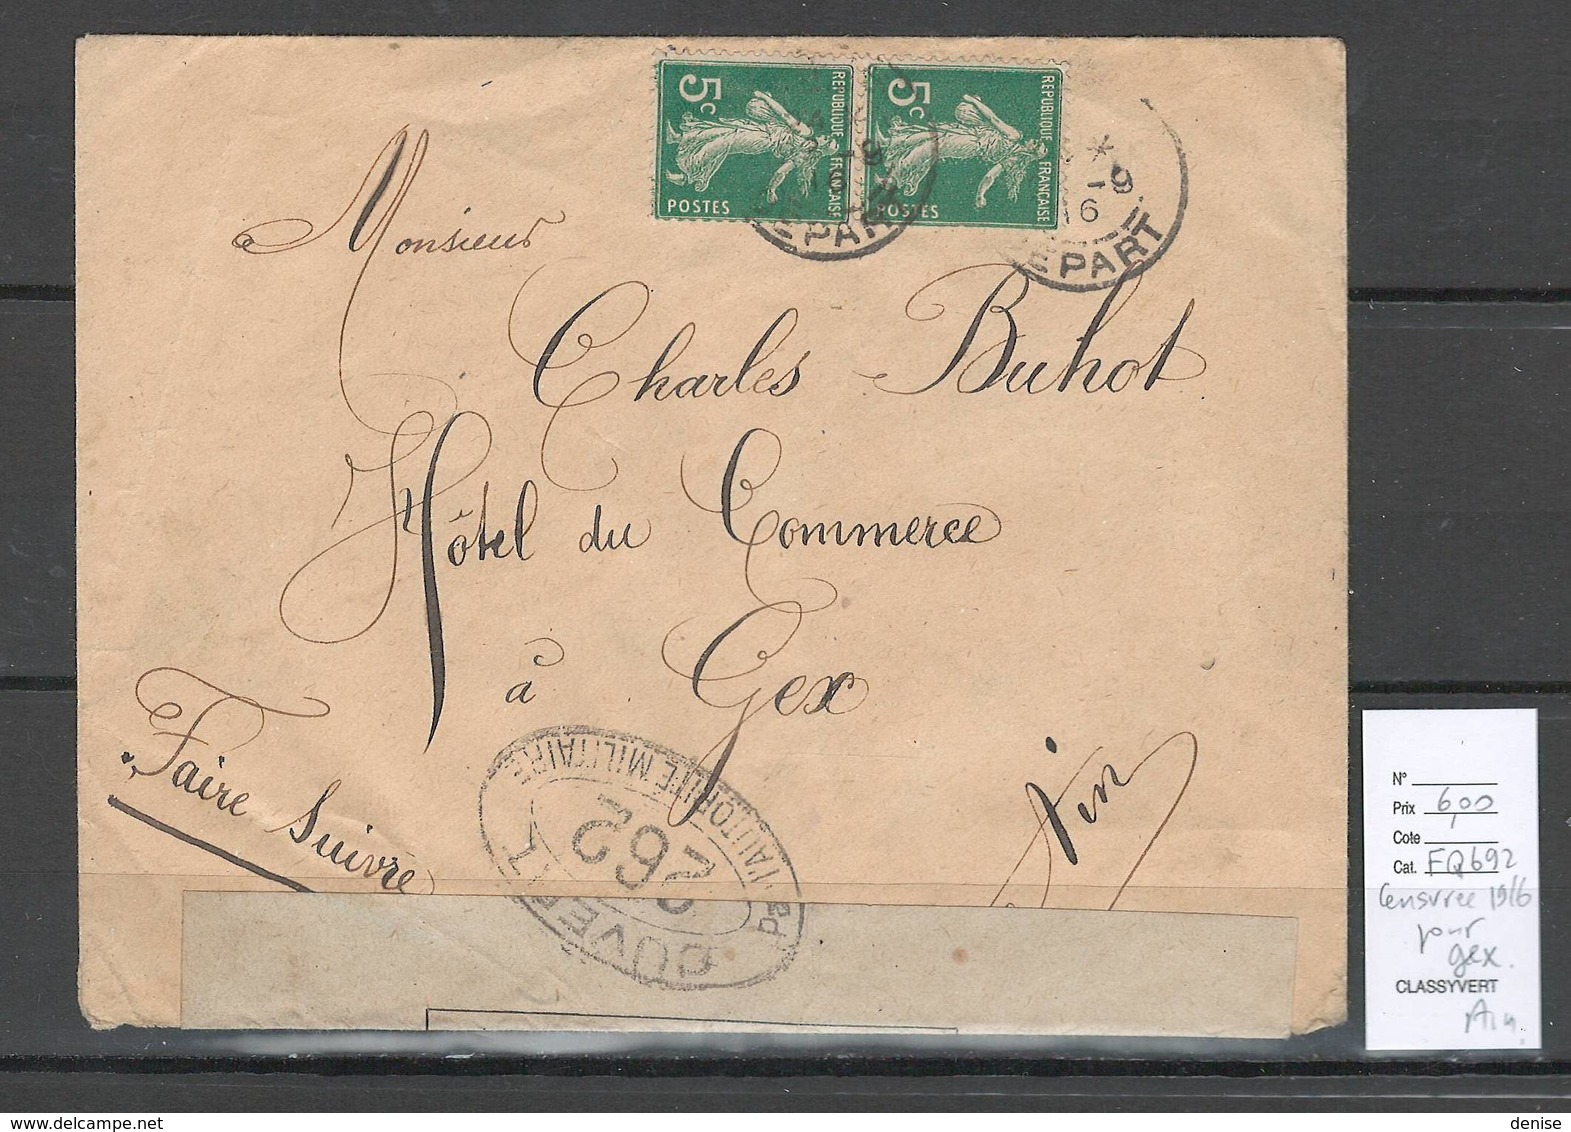 5c REPUBLIQUE FRANÇAISE POSTES
5c REPUBLIQUE FRANÇAISE POSTES
-9
16
EPART
*
-9
16
EPART
Monsieur
Charles Buhot
Hôtel du Commerce
à Gex
Ain
Faire Suivre
OUVERT
Par l'AUTORITÉ MILITAIRE
262
N°
Prix 6,00
Cote
Cat. FQ692
Censuree 1916
pour
gex.
CLASSYVERT
Ain.
denise